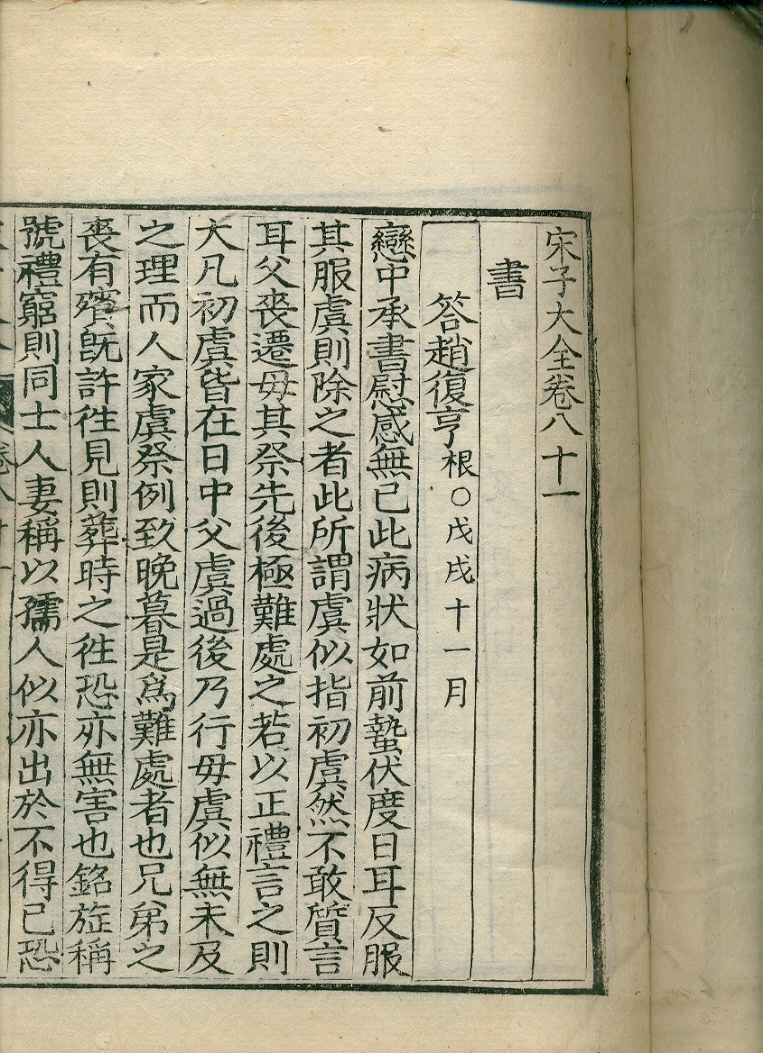 宋子大全卷八十一
書
答趙復亨根○戊戌十一月
戀中承書慰感無已此病狀如前蟄伏度日耳反服
其服虞則除之者此所謂虞似指初虞然不敢質言
耳父喪遷毋其祭先後極難處之若以正禮言之則
大凡初虞皆在日中父虞過後乃行毋虞似無未及
之理而人家虞祭例致晚暮是爲難處者也兄弟之
喪有殯旣許徃見則葬時之徃恐亦無害也銘旌稱
號禮窮則同士人妻稱以孺人似亦出於不得已恐
卷八十一